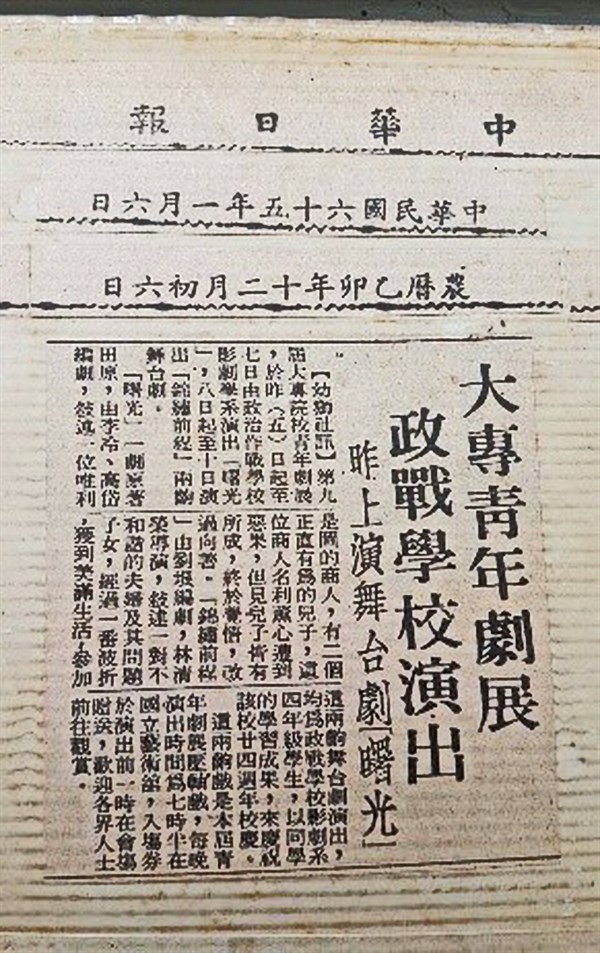 中華日報
中華民國六十五年一月六日
農曆乙卯年十二月初六日
大專青年劇展
政戰學校演出
昨上演舞台劇「曙光」
【幼獅社訊】第九
屆大專院校青年劇展
,於昨(五)日起至
七日由政治作戰學校
影劇學系演出「曙光
」,八日起至十日演
出「錦繡前程」兩齣
舞台劇。
「曙光」一劇原著
田原,由李冷、高岱
編劇,敍述一位唯利
是圖的商人,有二個
正直有為的兒子,這
位商人名利薰心遭到
惡果,但見兒子皆有
所成,終於覺悟,改
過向善。「錦繡前程
」由劉垠編劇,林清
榮導演,敍述一對不
和諧的夫婦及其問題
子女,經過一番波折
,獲到美滿生活,參加
這兩齣舞台劇演出,
均為政戰學校影劇系
四年級學生,以同學
的學習成果,來慶祝
該校廿四週年校慶。
這兩齣戲是本屆青
年劇展壓軸戲,每晚
演出時間為七時半在
國立藝術館,入場券
於演出前一時在會場
贈送,歡迎各界人士
前往觀賞。